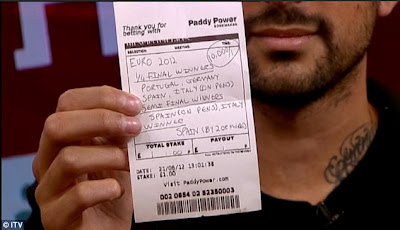 Thank you for
betting with
Paddy Power
BOOKMAKERS
SELECTION
MEETING
TIME
EURO 2012
1/4 FINAL WINNERS
PORTUGAL, GERMANY
SPAIN, ITALY (ON PENS)
SEMI FINAL WINNERS
SPAIN (ON PENS), ITALY
WINNER
SPAIN (BY 2 OR MORE)
TOTAL STAKE
PAYOUT
£
£
DATE: 21/06/12 13:01:38
STAKE: £1.00
Visit PaddyPower.com
© ITV